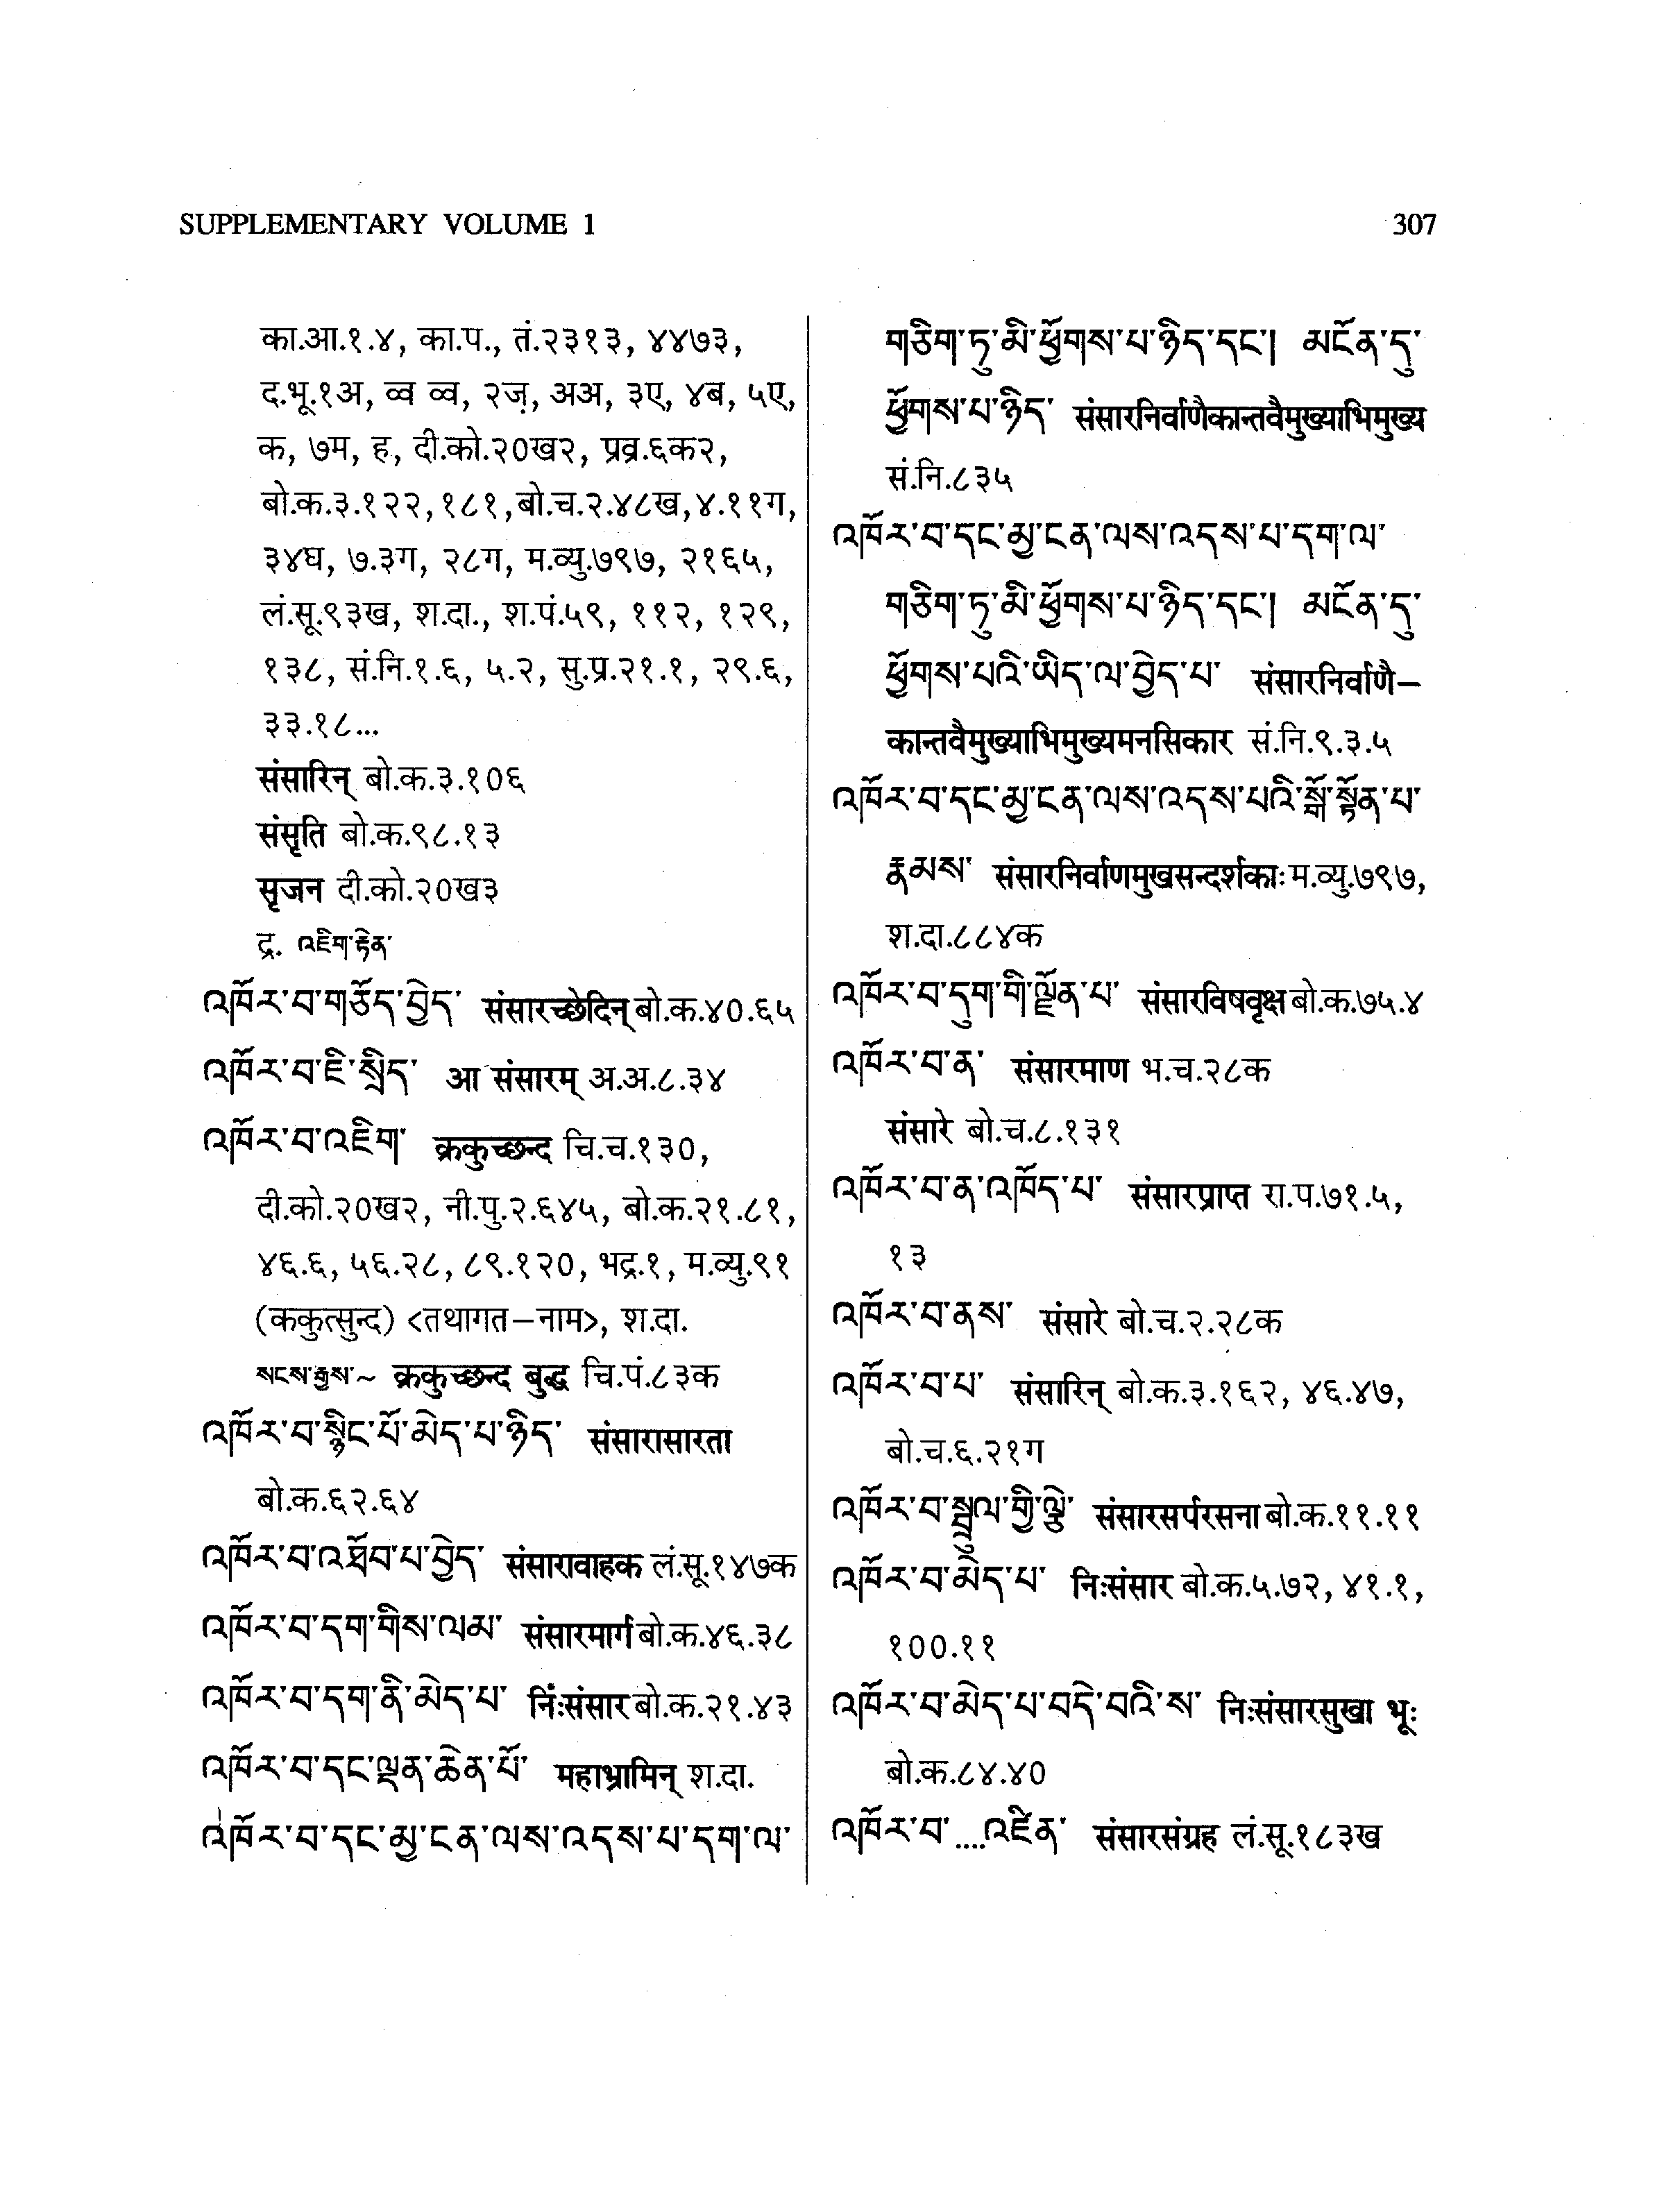 SUPPLEMENTARY VOLUME 1
307
का.आ.१.४, का.प., तं.२३१३, ४४७३,
द.भू.१अ, व्व व्व, २ज़, अअ, ३ए, ४ब, ५ए,
क, ७म, ह, दी.को.२0ख२, प्रव्र.६क२,
बो.क.३.१२२, १८१, बो.च.२.४८ख, ४.११ग,
३४घ, ७.३ग, २८ग, म.व्यु.७९७, २१६५,
लं.सू.९३ख, श.दा., श.पं.५९, ११२, १२९,
१३८, सं.नि.१.६, ५.२, सु.प्र.२१.१, २९.६,
३३.१८...
संसारिन् बो.क.३.१0६
संसृति बो.क.९८.१३
सृजन दी.को.२0ख३
द्र. འཇིག་རྟེན་
འཁོར་བ་གཅོད་བྱེད་ संसारच्छेदिन् बो.क.४0.६५
འཁོར་བ་ཇི་སྲིད་ आ संसारम् अ.अ.८.३४
འཁོར་བ་འཇིག་ क्रकुच्छन्द चि.च.१३0,
दी.को.२0ख२, नी.पु.२.६४५, बो.क.२१.८१,
४६.६, ५६.२८, ८९.१२0, भद्र.१, म.व्यु.९१
(ककुत्सुन्द) <तथागत–नाम>, श.दा.
སངས་རྒྱས་~ क्रकुच्छन्द बुद्ध चि.पं.८३क
འཁོར་བ་སྙིང་པོ་མེད་པ་ཉིད་ संसारासारता
बो.क.६२.६४
འཁོར་བ་འཐོབ་པ་བྱེད་ संसारावाहक लं.सू.१४७क
འཁོར་བ་དག་གིས་ལམ་ संसारमार्ग बो.क.४६.३८
འཁོར་བ་དག་ནི་མེད་པ་ निःसंसार बो.क.२१.४३
འཁོར་བ་དང་ལྡན་ཆེན་པོ་ महाभ्रामिन् श.दा.
འཁོར་བ་དང་མྱ་ངན་ལས་འདས་པ་དག་ལ་
གཅིག་ཏུ་མི་ཕྱོགས་པ་ཉིད་དང་། མངོན་དུ་
ཕྱོགས་པ་ཉིད་ संसारनिर्वाणैकान्तवैमुख्याभिमुख्य
सं.नि.८३५
འཁོར་བ་དང་མྱ་ངན་ལས་འདས་པ་དག་ལ་
གཅིག་ཏུ་མི་ཕྱོགས་པ་ཉིད་དང་། མངོན་དུ་
ཕྱོགས་པའི་ཡིད་ལ་བྱེད་པ་ संसारनिर्वाणै–
कान्तवैमुख्याभिमुख्यमनसिकार सं.नि.९.३.५
འཁོར་བ་དང་མྱ་ངན་ལས་འདས་པའི་སྒོ་སྟོན་པ་
རྣམས་ संसारनिर्वाणमुखसन्दर्शकाः म.व्यु.७९७,
श.दा.८८४क
འཁོར་བ་དུག་གི་ལྗོན་པ་ संसारविषवृक्ष बो.क.७५.४
འཁོར་བ་ན་ संसारमाण भ.च.२८क
संसारे बो.च.८.१३१
འཁོར་བ་ན་འཁོད་པ་ संसारप्राप्त रा.प.७१.५,
१३
འཁོར་བ་ནས་ संसारे बो.च.२.२८क
འཁོར་བ་པ་ संसारिन् बो.क.३.१६२, ४६.४७,
बो.च.६.२१ग
འཁོར་བ་སྦྲུལ་གྱི་ལྕེ་ संसारसर्परसना बो.क.११.११
འཁོར་བ་མེད་པ་ निःसंसार बो.क.५.७२, ४१.१,
१00.११
འཁོར་བ་མེད་པ་བདེ་བའི་ས་ निःसंसारसुखा भूः
बो.क.८४.४0
འཁོར་བ་....འཛིན་ संसारसंग्रह लं.सू.१८३ख